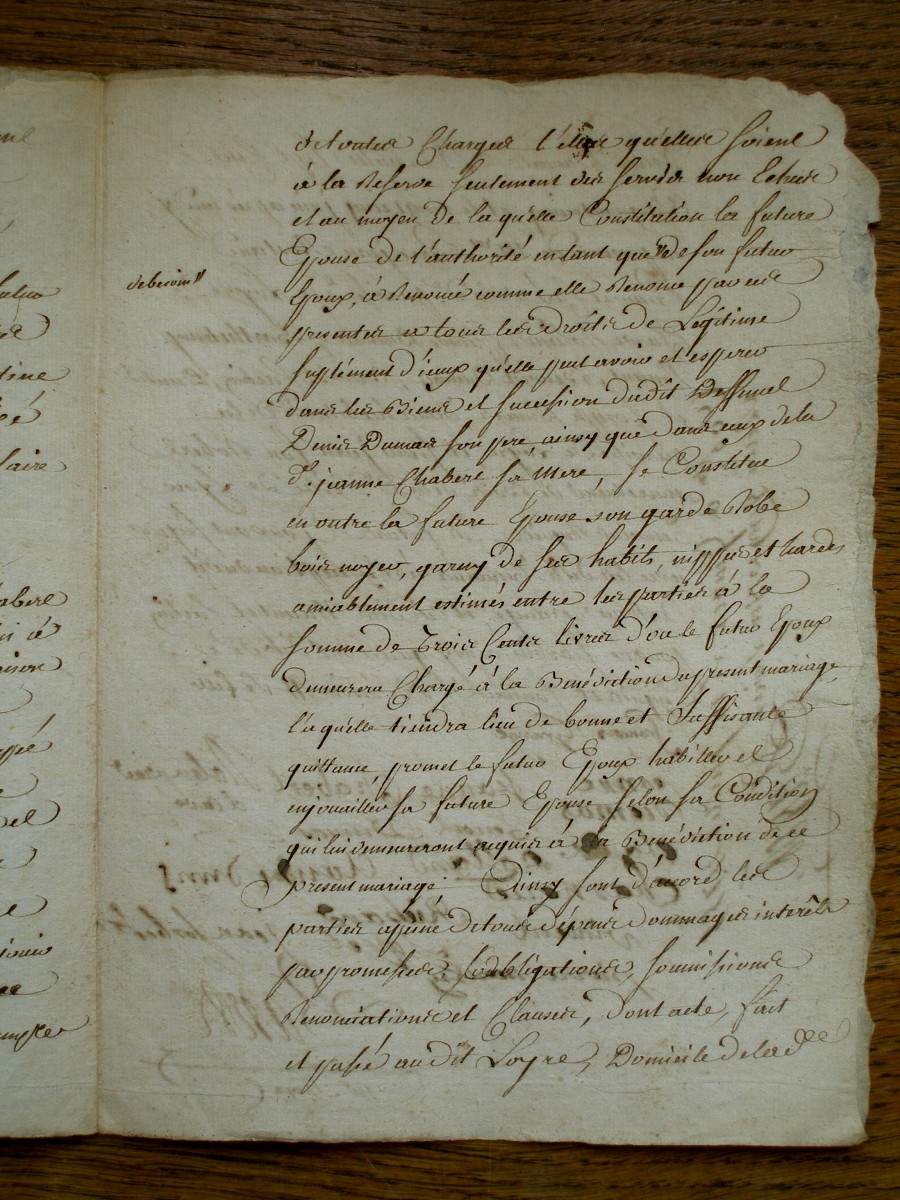 de toutes Charges telles qu'elles soient
à la Reserve seulement des servis non Echus
et au moyen de la qu'elle Constitution la future
Epouse de l'authorité en tant que" de son futur
de besoin"
Epoux, à Renoncé comme elle Renonce par ces
presentes a tous les droits de Legitime
suplément d'iceux qu'elle peut avoir et esperer
dans les Biens et succession dudit Deffunct
Denis Dumas son pere ainsy que dans ceux de la
d.e jeanne Chabert sa Mere, se Constitue
en outre la future Epouse son garde Robe
bois noyer, garny de ses habits, nippes et hardes
amiablement estimés entre les parties à la
somme de Trois Cents livres d'ou le futur Epoux
demeurera Chargé à la Bénédiction du present mariage,
la qu'elle tiendra lieu de bonne et suffisante
quittance, promet le futur Epoux habiller et
enjouailler sa future Epouse selon sa Condition
qui lui demeureront acquis à la Bénédiction de ce
present mariage. Ainsy sont d'acord les
parties a peine de tous dépens dommages interêts
par promesses, Cobbligations, soumissions
Renonciations et Clauses, dont acte, fait
et passé audit Loyre, Domicile de la d.e